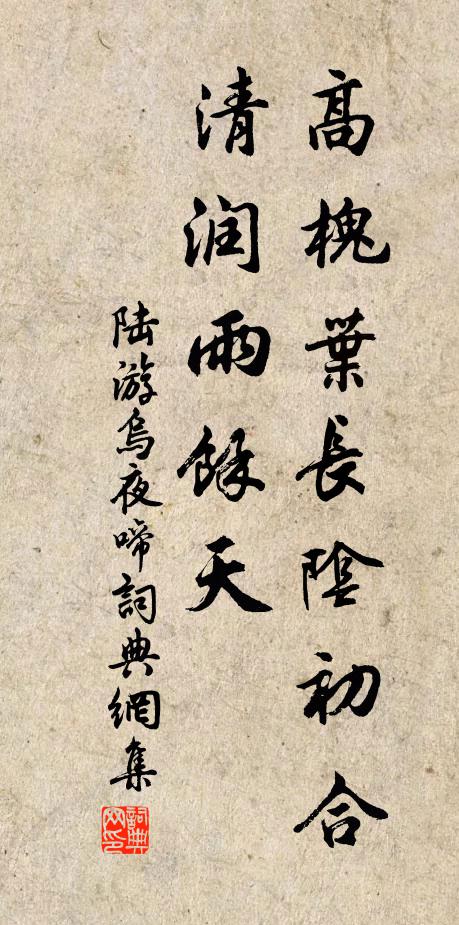 高槐葉長陰初合
清润雨餘天
陆游烏夜啼詞典網集
詞典网印